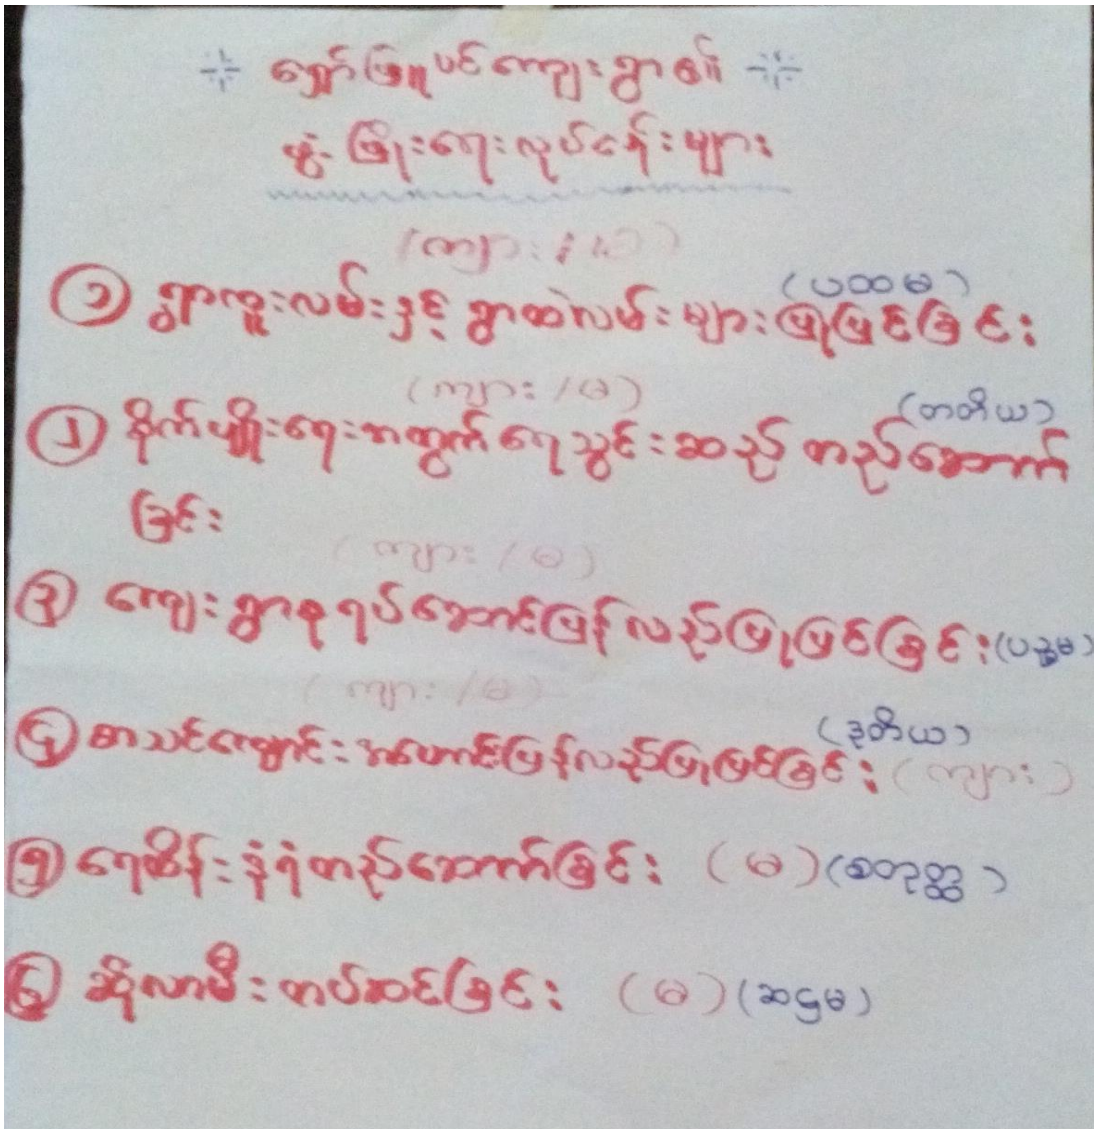 လျှော်ဖြူပင်ကျေးရွာ၏
ဖွံ့ဖြိုးရေးလုပ်ငန်းများ
(ကျား / မ)
(ပထမ)
၁ ရွာကူးလမ်းနှင့် ရွာထဲလမ်းများပြုပြင်ခြင်း
(ကျား / မ)
(တတိယ)
၂ စိုက်ပျိုးရေးအတွက် ရေသွင်းဆည် တည်ဆောက်
ခြင်း
(ကျား / မ)
၃ ကျေးရွာစုရပ်ဆောင်ပြန်လည်ပြုပြင်ခြင်း (ပဉ္စမ)
(ကျား / မ)
(ဒုတိယ)
၄ စာသင်ကျောင်းအဟောင်းပြန်လည်ပြုပြင်ခြင်း (ကျား)
၅ ရေထိန်းနံရံတည်ဆောက်ခြင်း (မ) (စတုတ္ထ)
၆ ဆိုလာမီးတပ်ဆင်ခြင်း (မ) (ဆဋ္ဌမ)